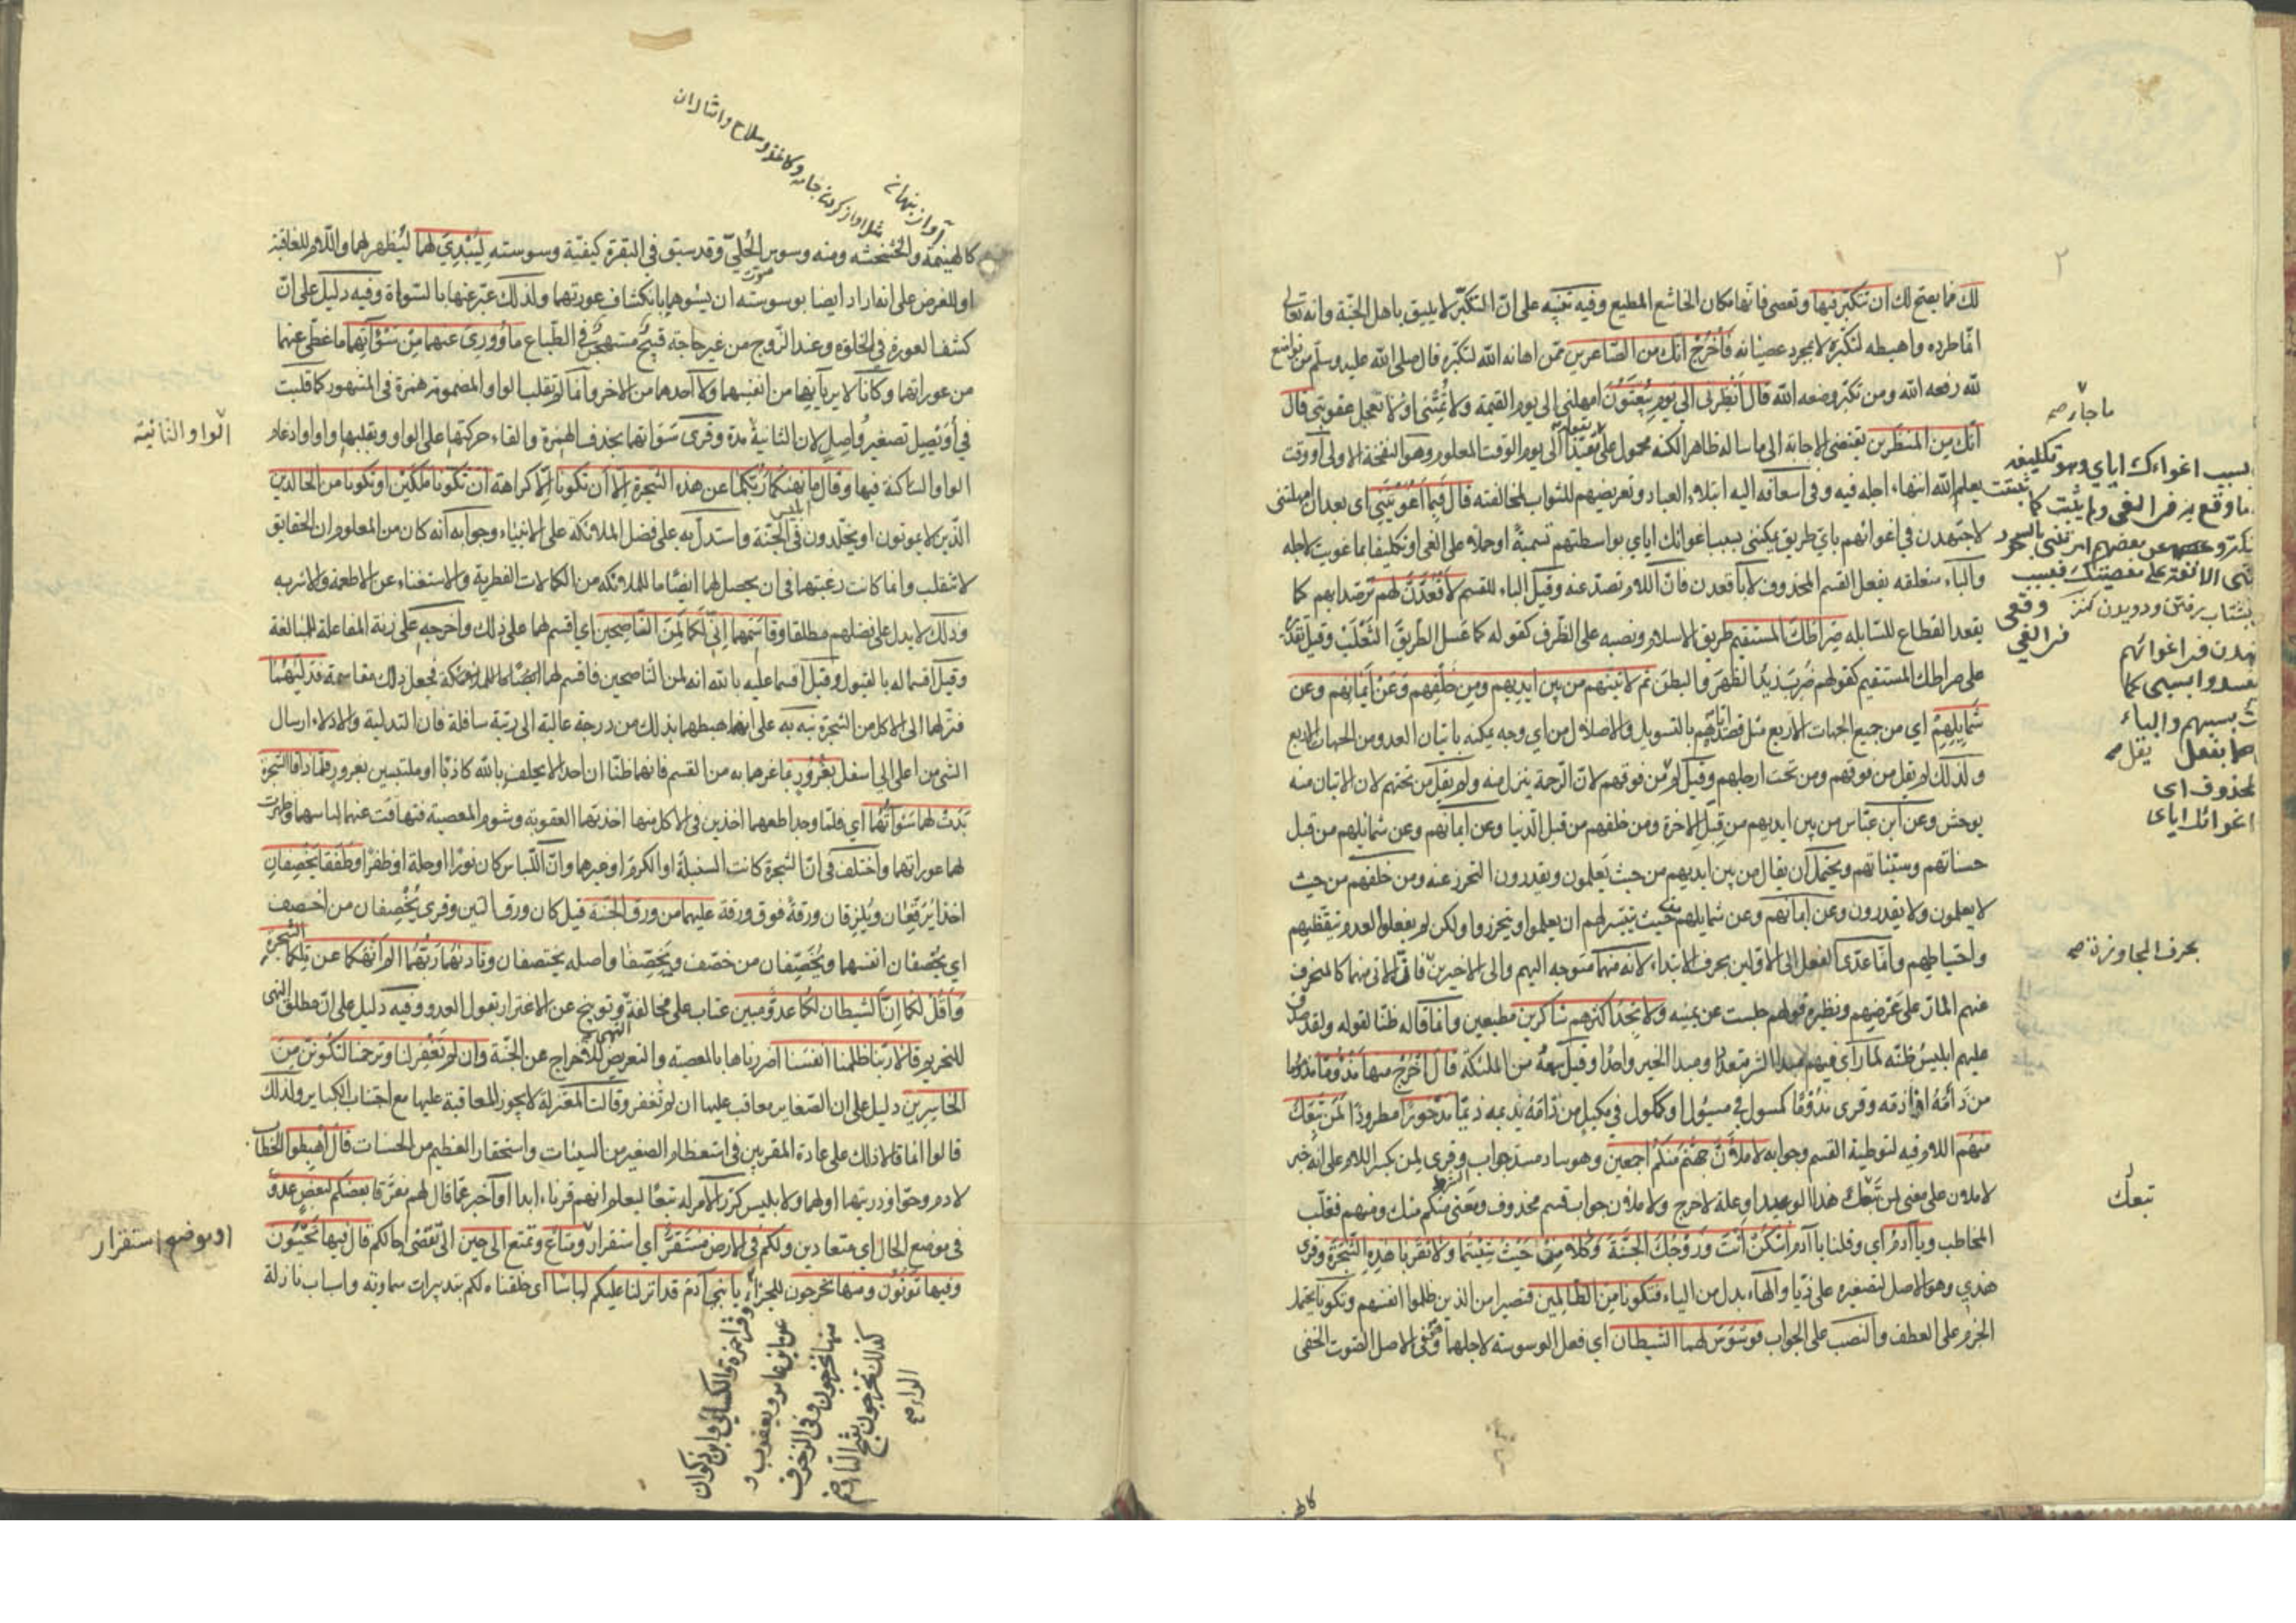 لك فما يصح لك ان تتكبر فيها وتعصى فانها مكان الخاشع المطيع وفيه تنبيه على ان التكبر لا يليق باهل الجنة وانه تعالى
انما طرده واهبطه لتكبره لا بمجرد عصيانه فاخرج انك من الصاغرين ممن اهانه الله لتكبره قال صلى الله عليه وسلم من تواضع
لله رفعه الله ومن تكبر وضعه الله قال انظرنى الى يوم يبعثون امهلنى الى يوم القيمة ولا تمتنى او لا تعجل عقوبتى قال
انك من المنظرين يقتضى الاجابة الى ما ساله ظاهرا لكنه محمول على مقيدا الى يوم الوقت المعلوم وهو النفخة الاولى او وقت
يعلم الله انتهاء اجله فيه وفى اسعافه اليه ابتلاء العباد وتعريضهم للثواب لمخالفته قال فبما اغويتنى اى بعد ان امهلتنى
لاجتهدن فى اغوائهم باى طريق يمكننى بسبب اغوائك اياى بواسطتهم تسمية او حملا على الغى او تكليفا بما غويت لاجله
والباء متعلقه بفعل القسم المحذوف لا باقعدن فان اللام تصد عنه وقيل الباء للقسم لاقعدن لهم ترصدا بهم كما
يقعد القطاع للسابله صراطك المستقيم طريق الاسلام ونصبه على الظرف كقوله كما عسل الطريق الثعلب وقيل تقديره
على صراطك المستقيم كقولهم ضرب زيد الظهر والبطن ثم لاتينهم من بين ايديهم ومن خلفهم وعن ايمانهم وعن
شمايلهم اي من جميع الجهات الاربع مثل قصده اياهم بالتسويل والاضلال من اي وجه يمكنه باتيان العدو من الجهات الاربع
ولذلك لم يقل من فوقهم ومن تحت ارجلهم وقيل لم من فوقهم لان الرحمة ينزل منه ولم يقل من تحتهم لان الاتيان منه
يوحش وعن ابن عباس من بين ايديهم من قبل الاخرة ومن خلفهم من قبل الدنيا وعن ايمانهم وعن شمايلهم من قبل
حسناتهم وسيئاتهم ويحتمل ان يقال من بين ايديهم من حيث يعلمون ويقدرون التحرز عنه ومن خلفهم من حيث
لا يعلمون ولا يقدرون وعن ايمانهم وعن شمايلهم من حيث يتيسر لهم ان يعلموا ويتحرزوا ولكن لم يفعلوا لعدم تيقظهم
واحتياطهم وانما عدى الفعل الى الاولين بحرف الابتداء لانه منهما متوجه اليهم والى الاخيرين فان الاتى منهما كالمنحرف
عنهم المار على عرضهم ونظيره قولهم جلست عن يمينه ولا تجد اكثرهم شاكرين مطيعين وانما قاله ظنا لقوله ولقد صدق
عليهم ابليس ظنه لما رآى فيهم مبدا الشر متعددا ومبدا الخير واحدا وقيل سمعه من الملئكة قال اخرج منها مذؤما مذموما
من ذامه اذا ذمه وقرى مذوما كمسول فى مسؤل او ككول فى مكيل من ذامه يذيمه ذيما مدحورا مطرودا لمن تبعك
منهم اللام فيه لتوطية القسم وجوابه لاملان جهنم منكم اجمعين وهو ساد مسد جواب الشرط وقرى لمن بكسر اللام على انه خبر
لاملان على معنى لمن تبعك هذا الوعيد او علة لاخرج ولاملان جواب قسم محذوف ومعنى منكم منك ومنهم فغلب
المخاطب ويا آدم اي وقلنا يا آدم اسكن انت وزوجك الجنة وكلا من حيث شئتما ولا تقربا هذه الشجرة وقرى
هذي وهو الاصل لتصغيره على ذيا والهاء بدل من الياء فتكونا من الظالمين فتصيرا من الذين ظلموا انفسهم وتكونا يحتمل
الجزم على العطف والنصب على الجواب فوسوس لهما الشيطان اي فعل الوسوسة لاجلهما وهى فى الاصل الصوت الخفى
ما جاء صح
بسبب اغواءك اياي وهو تكليفه
بحرف المجاوزة صح
تبعك
كالهـ
كالهينمة والخشخشة ومنه وسوس الحلي وقد سبق فى البقرة كيفية وسوسته ليبدي لهما ليظهر لهما واللام للعاقبة
او للغرض على انه اراد ايضا بوسوسته ان يسوهما بانكشاف عورتهما ولذلك عبر عنها بالسواة وفيه دليل على ان
كشف العورة في الخلوة وعند الزوج من غير حاجة قبيح مستهجن فى الطباع ما وورى عنهما من سوآتهما ما غطى عنهما
من عوراتهما وكانا لا يريانها من انفسهما ولا احدهما من الاخر وانما لم تقلب الواو المضمومة همزة فى المشهور كما قلبت
في أويصل تصغير واصل لان الثانية مدة وقرى سواتهما بحذف الهمزة والقاء حركتها على الواو وبقلبها واوا وادغام
الواو الساكنة فيها وقال ما نهيكما ربكما عن هذه الشجرة الا ان تكونا الا كراهة ان تكونا ملكين او تكونا من الخالدين
الذين لا يموتون او يخلدون فى الجنة واستدل به على فضل الملائكة على الانبياء وجوابه انه كان من المعلوم ان الحقايق
لا تنقلب وانما كانت رغبتهما فى ان يحصل لهما ايضا ما للملائكة من الكمالات الفطرية والاستغناء عن الاطعمة والاشربة
وذلك لا يدل على فضلهم مطلقا وقاسمهما اني لكما لمن الناصحين اي اقسم لهما على ذلك واخرجه على زنة المفاعلة للمبالغة
وقيل اقسما له بالقبول وقيل اقسما عليه بالله انه لمن الناصحين فاقسم لهما فجعل ذلك مقاسمة فدليهما
فنزلهما الى الاكل من الشجرة نبه به على انه اهبطهما بذلك من درجة عالية الى رتبة سافلة فان التدلية والادلاء ارسال
الشى من اعلى الى اسفل بغرور بما غرهما به من القسم فانهما ظنا ان احدا لا يحلف بالله كاذبا او ملتبسين بغرور فلما ذاقا الشجرة
بدت لهما سوآتهما اي فلما وجدا طعمها اخذين فى الاكل منها اخذتهما العقوبة وشوم المعصية فتهافت عنهما لباسهما وظهرت
لهما عوراتهما واختلف فى ان الشجرة كانت السنبلة او الكرم او غيرهما وان اللباس كان نورا او حلة او ظفرا وطفقا يخصفان
اخذا يرقعان ويلزقان ورقة فوق ورقة عليهما من ورق الجنة قيل كان ورق التين وقرى يخصفان من اخصف
اي يخصفان انفسهما ويخصفان من خصف ويخصفان واصله يختصفان وناديهما ربهما الم انهكما عن تلكما الشجرة
واقل لكما ان الشيطان لكما عدو مبين عتاب على مخالفة النهى وتوبيخ عن الاغترار بقول العدو وفيه دليل على ان مطلق النهى
للتحريم قالا ربنا ظلمنا انفسنا اضررناها بالمعصية والتعريض للاخراج عن الجنة وان لم تغفر لنا وترحمنا لنكونن من
الخاسرين دليل على ان الصغاير معاقب عليها ان لم تغفر وقالت المعتزلة لا يجوز المعاقبة عليها مع اجتناب الكباير ولذلك
قالوا انما قالا ذلك على عادة المقربين فى استعظام الصغير من السيئات واستحقار العظيم من الحسنات قال اهبطوا الخطاب
لادم وحوا وذريتهما او لهما ولابليس كرر الامر له تبعا ليعلم انهم قرناء ابدا او آخبر عما قال لهم متفرقا بعضكم لبعض عدو
فى موضع الحال اي متعادين ولكم فى الارض مستقر اي استقرار ومتاع وتمتع الى حين الى تقضى اجالكم قال فيها تحيون
وفيها تموتون ومنها تخرجون للجزاء يا بني آدم قد انزلنا عليكم لباسا اى خلقناه لكم بتدبيرات سماوية واسباب نازلة
الواو الثانية
او موضع استقرار
آواز پنهان
وقرا حمزة والكسائي وابن ذكوان
منها تخرجون وفى الزخرف
كذلك تخرجون بفتح التاء وضم
الراء صح